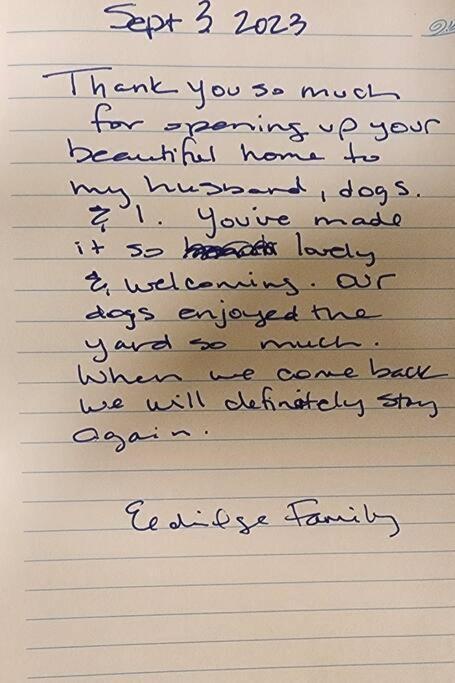 Sept 3 2023
Thank you so much
for opening up your
beautiful home to
my husband, dogs.
& I. You've made
it so lovely
& welcoming. Our
dogs enjoyed the
yard so much.
When we come back
we will definitely stay
again.
Family